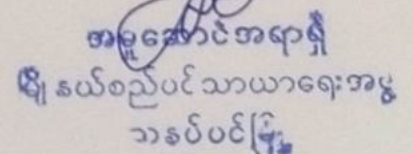 အမှုဆောင်အရာရှိ
မြို့နယ်စည်ပင်သာယာရေးအဖွဲ့
သနပ်ပင်မြို့